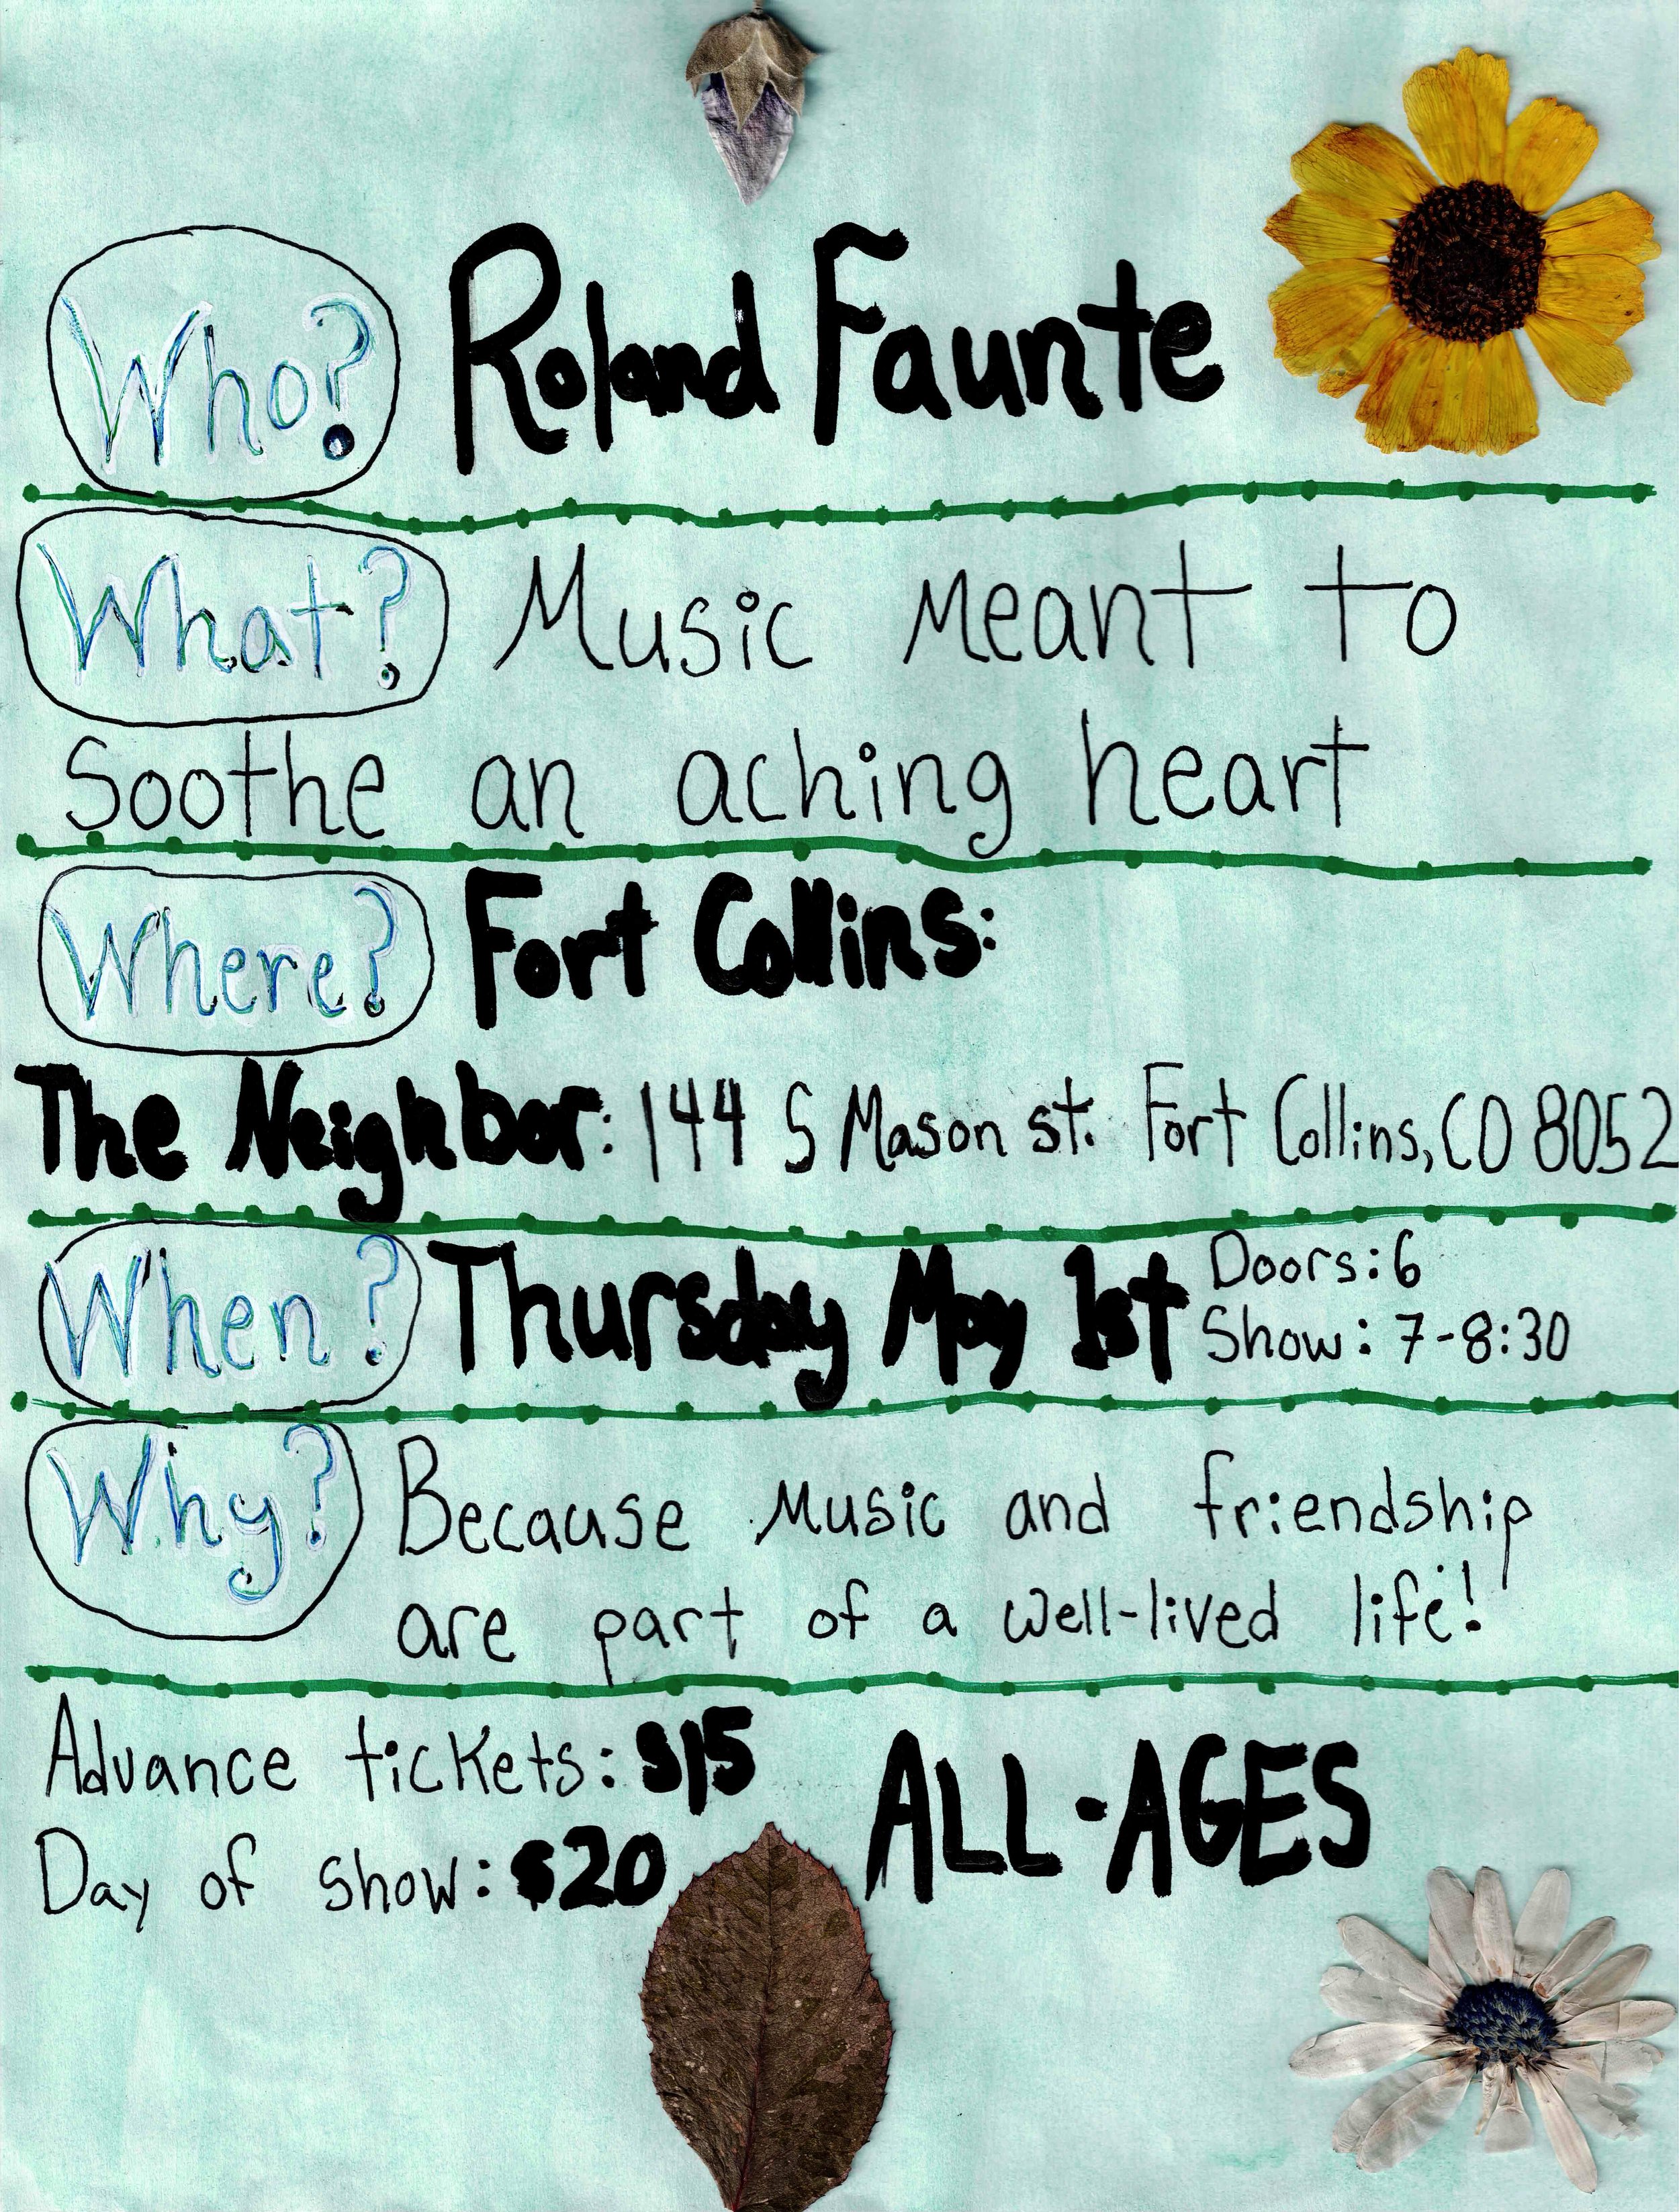 Who? Roland Faunte
What? Music meant to
Soothe an aching heart
Where? Fort Collins:
The Neighbor: 144 S Mason st. Fort Collins, CO 8052
When? Thursday May 1st Doors: 6
Show: 7-8:30
Why? Because Music and friendship
are part of a well-lived life!
Advance tickets: $15
Day of show: $20
ALL-AGES